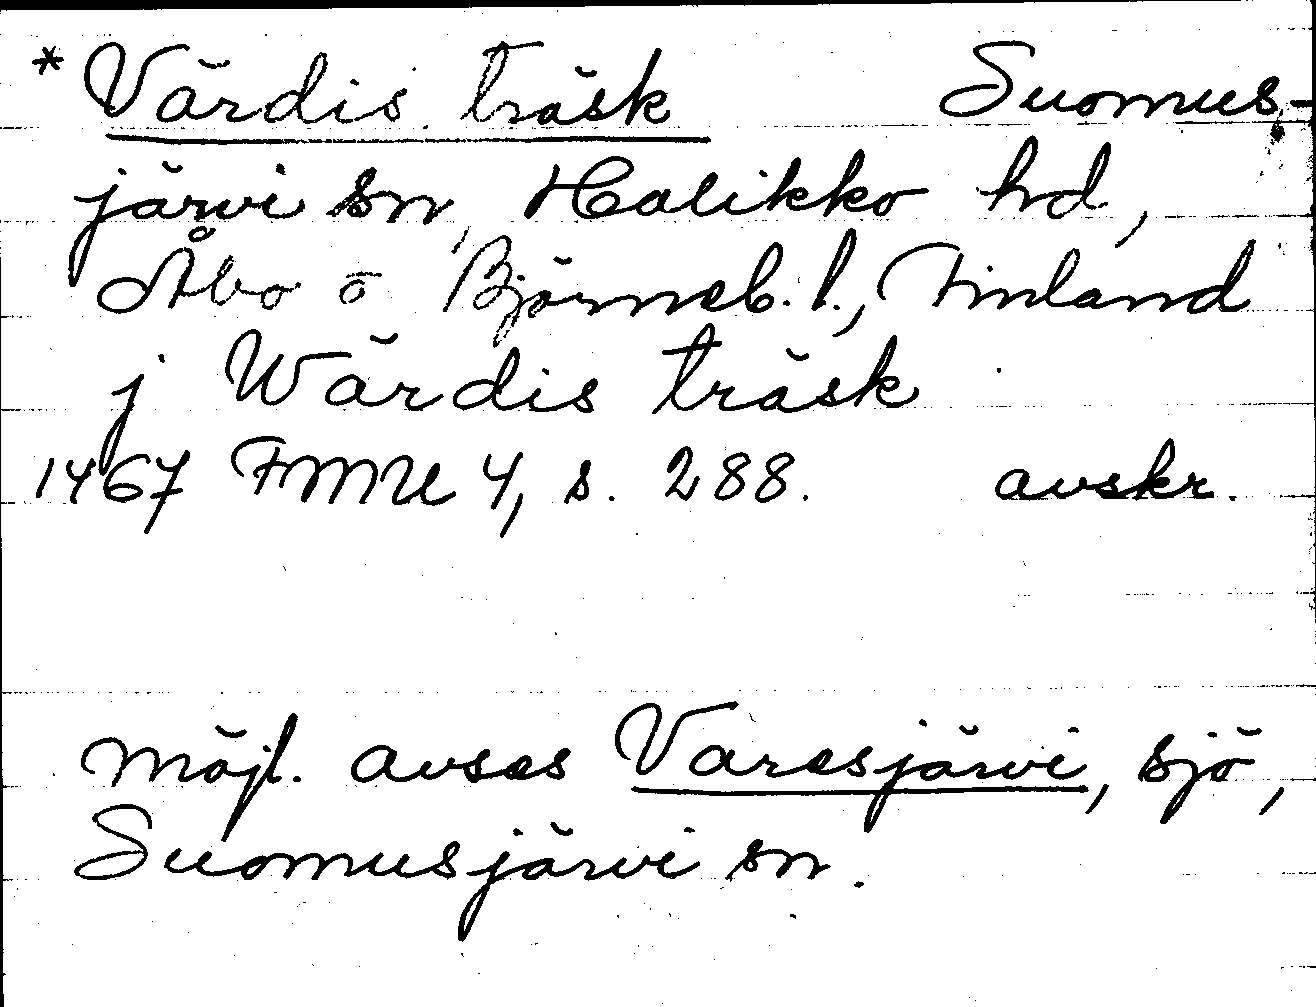 * Värdis träsk Suomus-
järvi sn, Halikko hd,
Åbo o Björneb. l., Finland
j Wärdis träsk
1467 FMU 4, s. 288. avskr.
möjl. avses Varesjärvi, sjö,
Suomusjärvi sn.